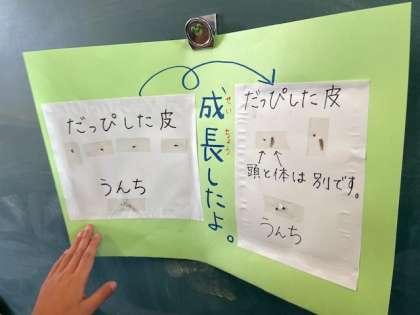 だっぴした皮
うんち
成長したよ。
せい
ちょう
だっぴした皮
頭と体は別です。
うんち